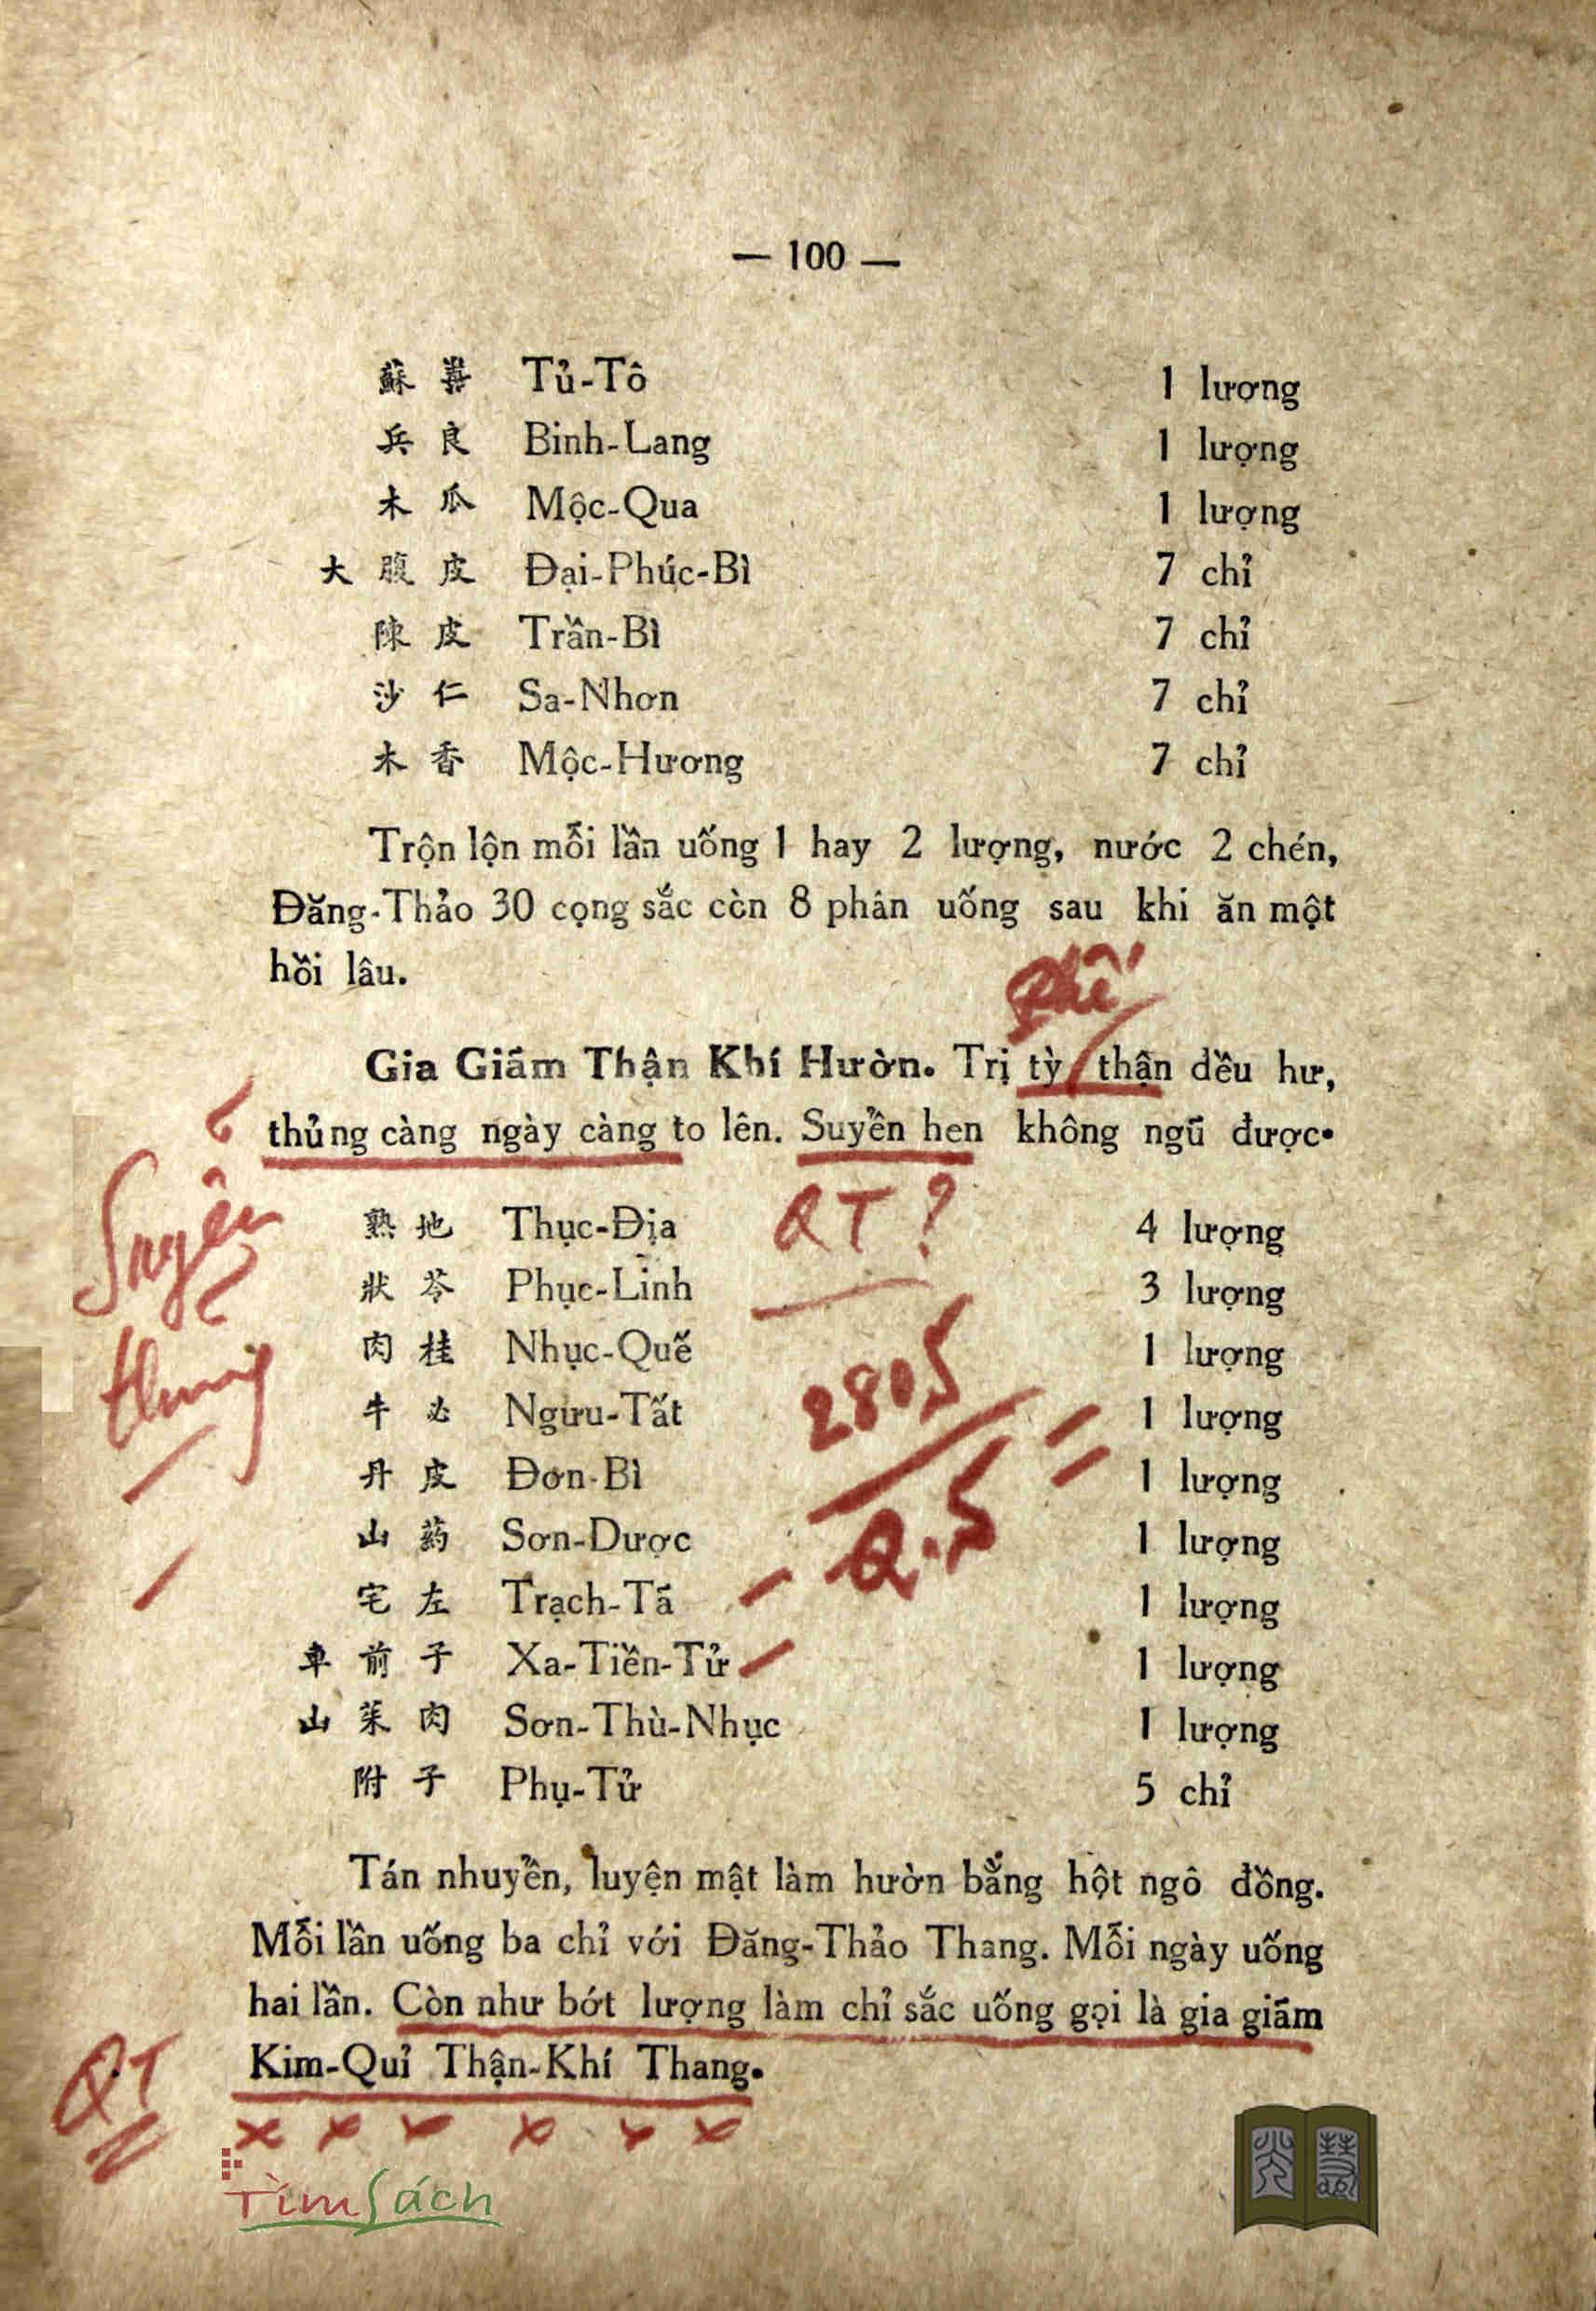 — 100 —
蘇 Tủ-Tô 1 lương
兵 良 Binh-Lang 1 lượng
木 瓜 Mộc-Qua 1 lượng
大 腹 皮 Đại-Phúc-Bì 7 chỉ
陳 皮 Trần-Bì 7 chỉ
沙 仁 Sa-Nhơn 7 chỉ
木 香 Mộc-Hương 7 chỉ
Trộn lộn mỗi lần uống 1 hay 2 lượng, nước 2 chén,
Đăng-Thảo 30 cọng sắc còn 8 phân uống sau khi ăn một
hồi lâu.
Phế
Gia Giảm Thận Khí Hườn. Trị tỳ / thận dều hư,
thủng càng ngày càng to lên. Suyển hen không ngũ được.
Suyển
thủng
QT ?
熟 地 Thục-Địa 4 lượng
狀 苓 Phục-Linh 3 lượng
肉 桂 Nhục-Quế 1 lượng
牛 必 Ngưu-Tất 1 lượng
2805
丹 皮 Đơn-Bì 1 lượng
山 葯 Sơn-Dược 1 lượng
Q.S =
宅 左 Trạch-Tả 1 lượng
車 前 子 Xa-Tiền-Tử 1 lượng
山 茱 肉 Sơn-Thù-Nhục 1 lượng
附 子 Phụ-Tử 5 chỉ
Tán nhuyển, luyện mật làm hườn bằng hột ngô đồng.
Mỗi lần uống ba chỉ với Đăng-Thảo Thang. Mỗi ngày uống
hai lần. Còn như bớt lượng làm chỉ sắc uống gọi là gia giảm
Kim-Quỉ Thận-Khí Thang.
QT
x x x x x x
TìmSách